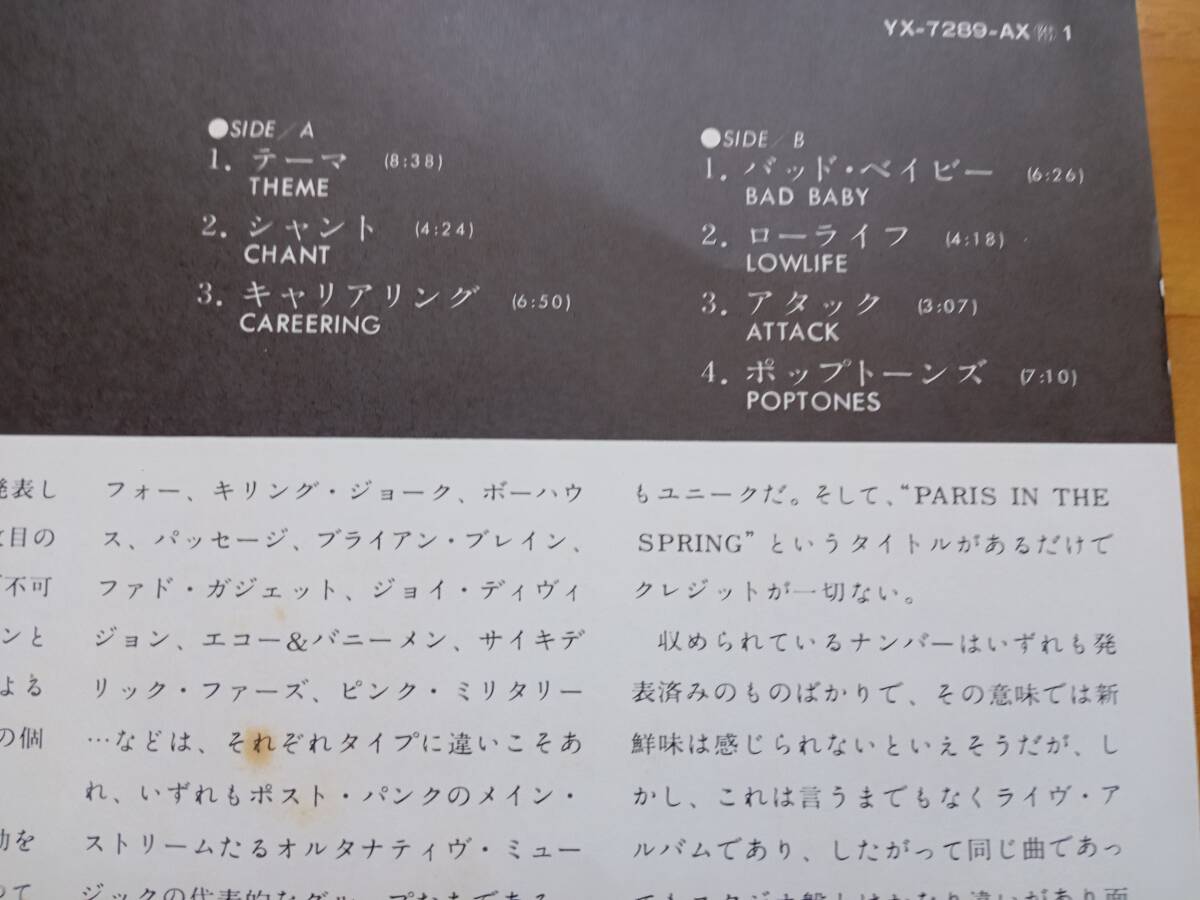 YX-7289-AX 1
●SIDE/A
1. テーマ (8:38)
THEME
2. シャント (4:24)
CHANT
3. キャリアリング (6:50)
CAREERING
●SIDE/B
1. バッド・ベイビー (6:26)
BAD BABY
2. ローライフ (4:18)
LOWLIFE
3. アタック (3:07)
ATTACK
4. ポップトーンズ (7:10)
POPTONES
発表し
目の
不可
ンと
よる
の個
を
って
フォー、キリング・ジョーク、ボーハウ
ス、パッセージ、ブライアン・ブレイン、
ファド・ガジェット、ジョイ・ディヴィ
ジョン、エコー&バニーメン、サイキデ
リック・ファーズ、ピンク・ミリタリー
…などは、それぞれタイプに違いこそあ
れ、いずれもポスト・パンクのメイン・
ストリームたるオルタナティヴ・ミュー
ジックの代表的なグループたちである。
もユニークだ。そして、“PARIS IN THE
SPRING”というタイトルがあるだけで
クレジットが一切ない。
収められているナンバーはいずれも発
表済みのものばかりで、その意味では新
鮮味は感じられないといえそうだが、し
かし、これは言うまでもなくライヴ・ア
ルバムであり、したがって同じ曲であっ
てもスタジオ盤とはかなり違いがあり面